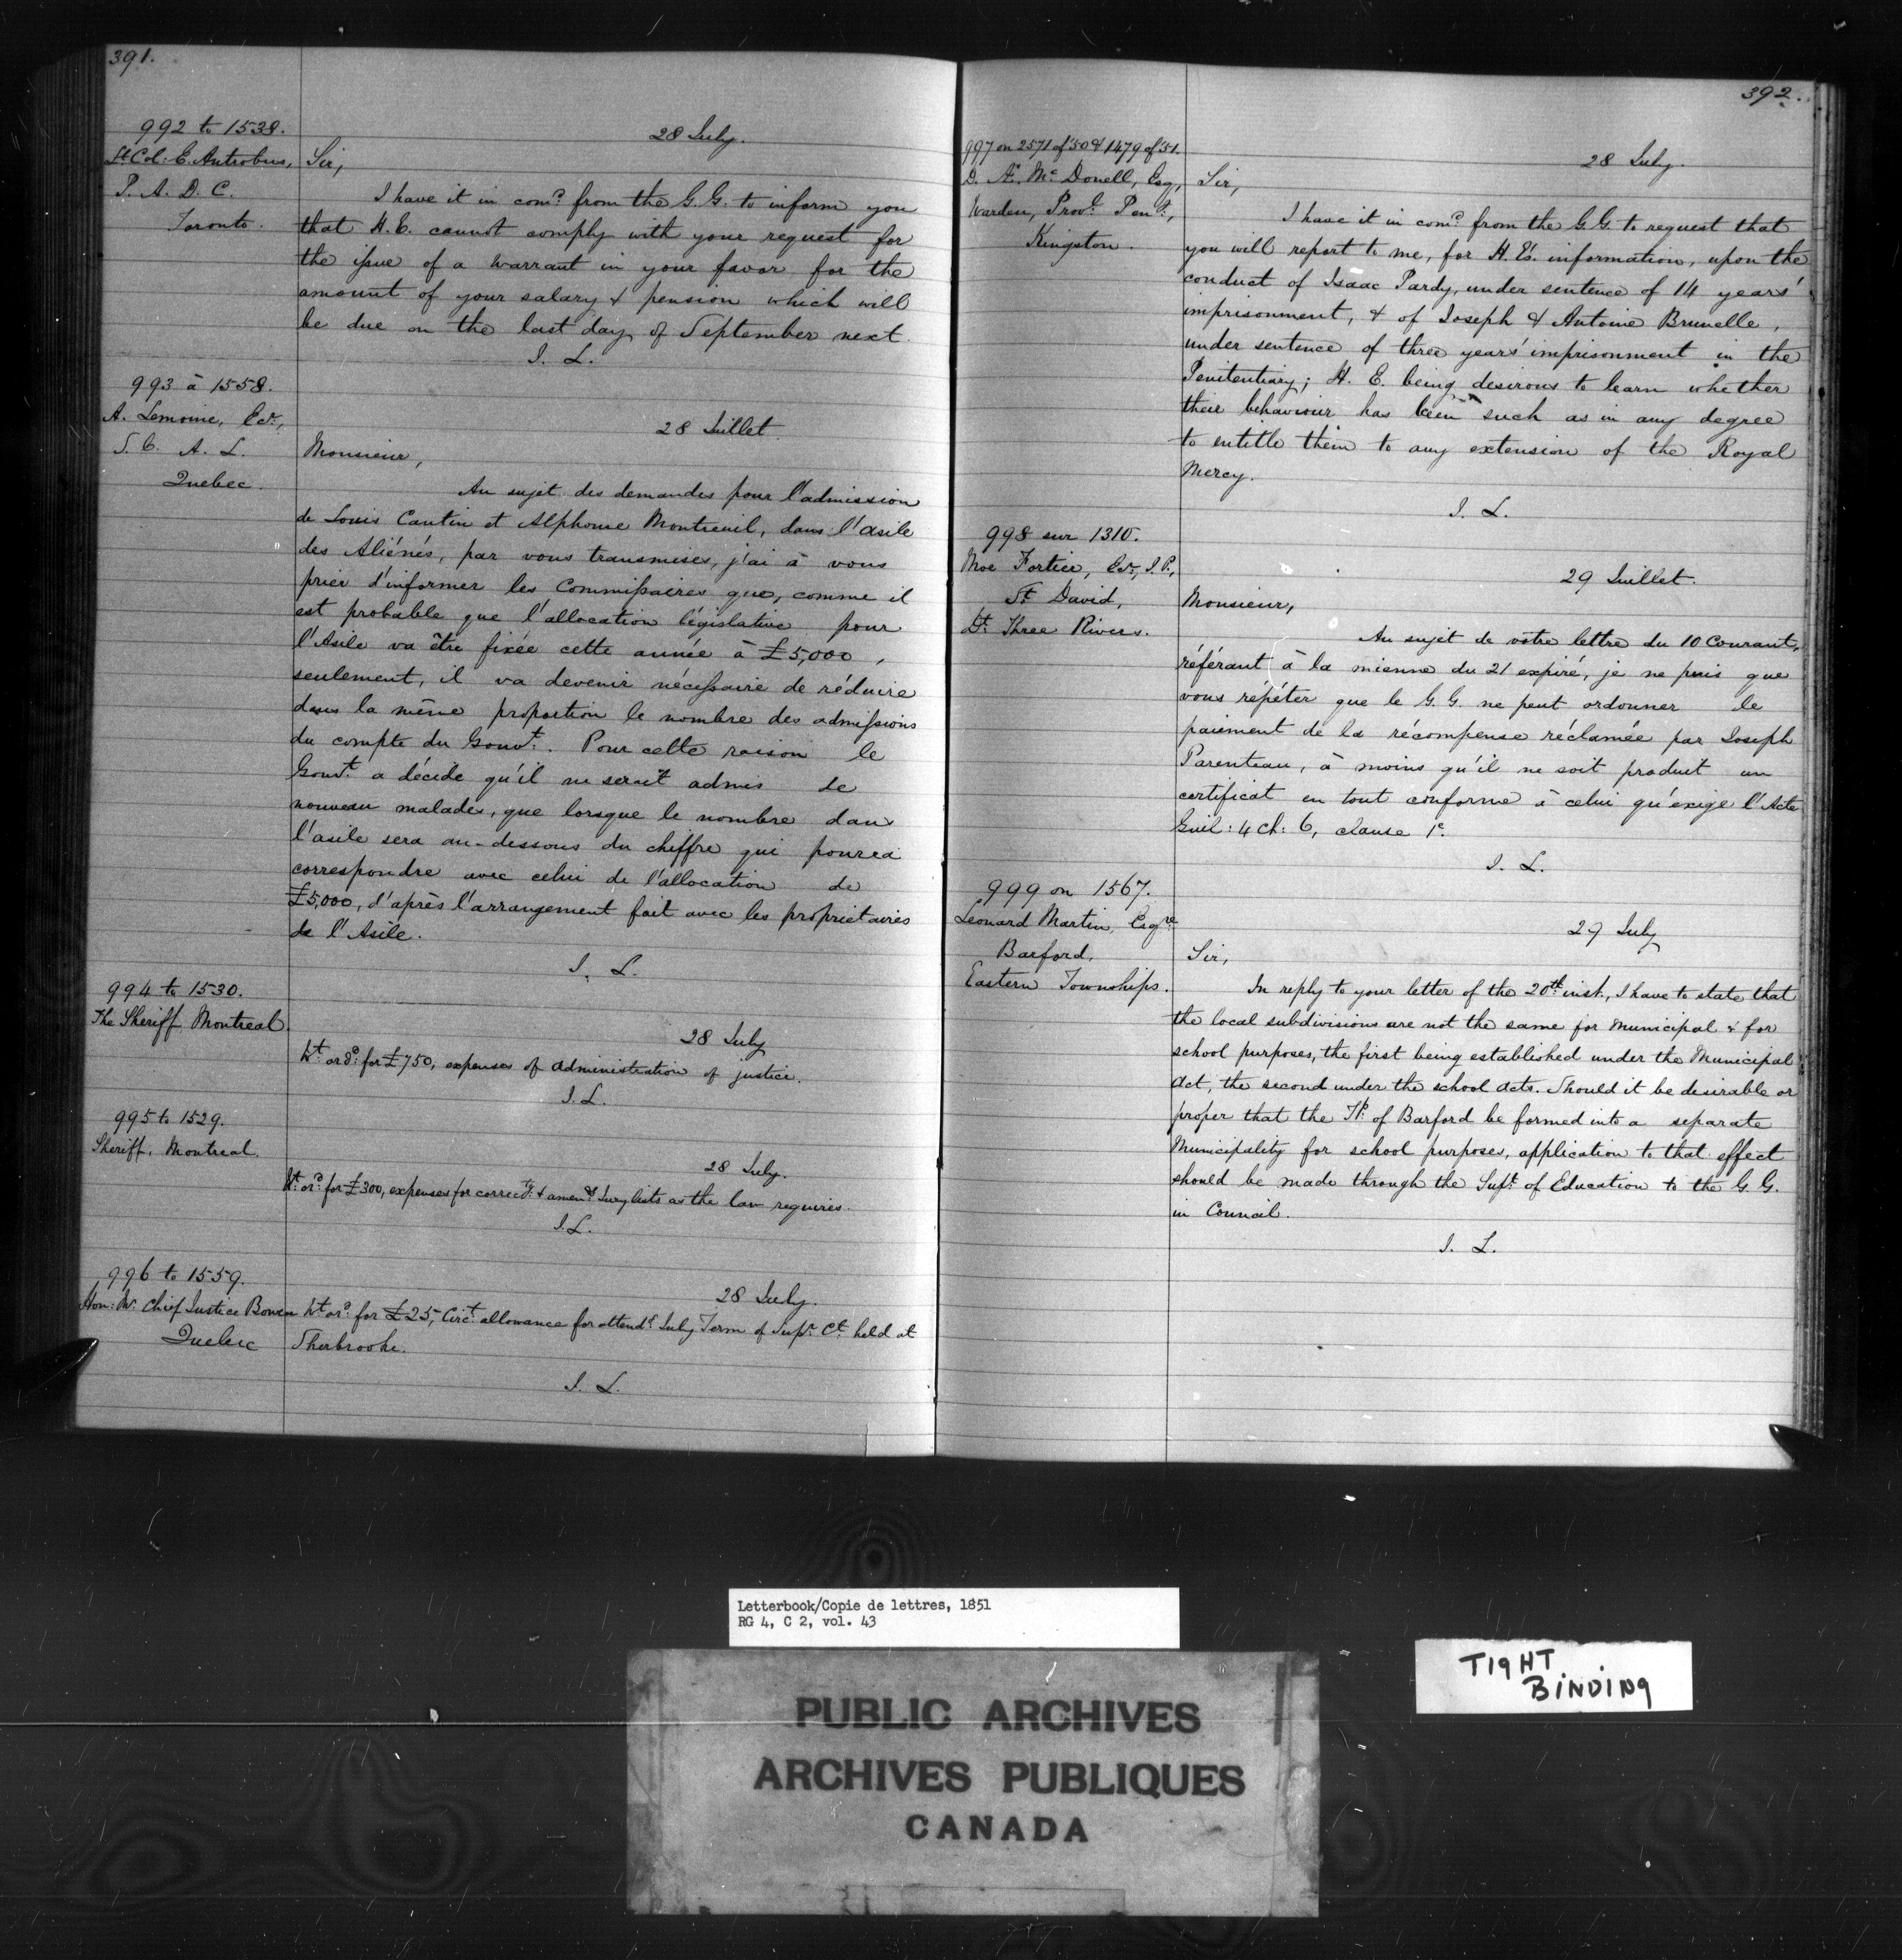 391.
992 to 1538.
Lt. Col. E. Antrobus,
P. A. D. C.
Toronto.
28 July.
Sir,
I have it in comd. from the G. G. to inform you
that H. E. cannot comply with your request for
the issue of a Warrant in your favor for the
amount of your salary & pension which will
be due on the last day of September next.
J. L.
993 à 1558.
A. Lemoine, Ecr.,
S. C. A. L.
Quebec.
28 Juillet.
Monsieur,
Au sujet des demandes pour l'admission
de Louis Cantin et Alphonse Montreuil, dans l'asile
des Aliénés, par vous transmises, j'ai à vous
prier d'informer les Commissaires que, comme il
est probable que l'allocation législative pour
l'Asile va être fixée cette année à £5,000,
seulement, il va devenir nécessaire de réduire
dans la même proportion le nombre des admissions
du compte du Gouvt. Pour cette raison le
Gouvt. a décidé qu'il ne serait admis de
nouveau malades, que lorsque le nombre dans
l'asile sera au-dessous du chiffre qui pourra
correspondre avec celui de l'allocation de
£5,000, d'après l'arrangement fait avec les propriétaires
de l'Asile.
J. L.
994 to 1530.
The Sheriff, Montreal.
28 July
Wt. ord. for £750, expenses of administration of justice.
J. L.
995 to 1529.
Sheriff, Montreal.
28 July.
Wt. ord. for £300, expenses for correctg. & amendg. Jury lists as the law requires.
J. L.
996 to 1559.
Hon: Mr. Chief Justice Bowen
Quebec
28 July.
Wt. ord. for £25, Circt. allowance for attendg. July Term of Supr. Ct. held at
Sherbrooke.
J. L.
392.
997 on 2571 of '50 & 1479 of '51.
D. Æ. McDonell, Esq,
Warden, Provl. Pent.,
Kingston.
28 July.
Sir,
I have it in comd. from the G. G. to request that
you will report to me, for H. E's. information, upon the
conduct of Isaac Pardy, under sentence of 14 years'
imprisonment, & of Joseph & Antoine Brunelle,
under sentence of three years' imprisonment in the
Penitentiary; H. E. being desirous to learn whether
their behaviour has been such as in any degree
to entitle them to any extension of the Royal
Mercy.
J. L.
998 sur 1310.
Moe Fortier, Ecr., J. P.,
St. David,
Dt. Three Rivers.
29 Juillet.
Monsieur,
Au sujet de votre lettre du 10 Courant,
référant à la mienne du 21 expiré, je ne puis que
vous repéter que le G. G. ne peut ordonner le
paiement de la récompense réclamée par Joseph
Parenteau, à moins qu'il ne soit produit un
certificat en tout conforme à celui qu'exige l'Acte
Guil: 4 Ch: 6, clause 1e.
J. L.
999 on 1567.
Leonard Martin, Esqre
Barford,
Eastern Townships.
29 July
Sir,
In reply to your letter of the 20th inst., I have to state that
the local subdivisions are not the same for Municipal & for
school purposes, the first being established under the Municipal
Act, the second under the school acts. Should it be desirable or
proper that the Tp. of Barford be formed into a separate
Municipality for school purposes, application to that effect
should be made through the Supt. of Education to the G. G.
in Council.
J. L.
Letterbook/Copie de lettres, 1851
RG 4, C 2, vol. 43
TIGHT
BINDING
PUBLIC ARCHIVES
ARCHIVES PUBLIQUES
CANADA